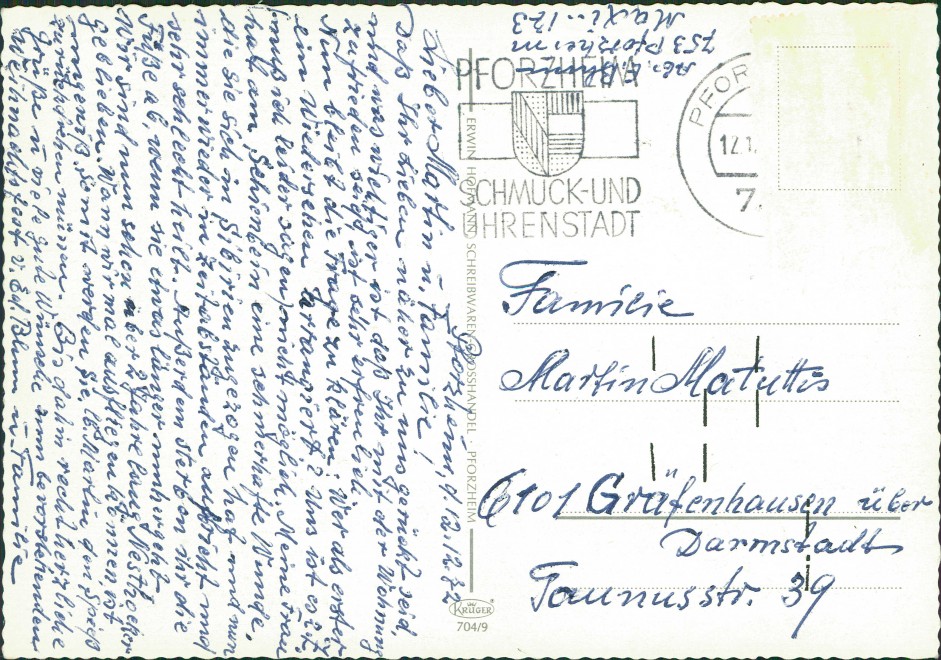 Pforzheim, d. 12.12.72
Lieber Martin u. Familie!
Daß Ihr Lieben näher zu uns gerückt seid,
und was wichtiger ist daß Ihr mit der Wohnung
zufrieden seid ist sehr erfreulich.
Nun bleibt die Frage zu klären: Wer als erster
ein Wiedersehen arrangiert? Uns ist es z.Zt.
(muß ich leider sagen) nicht möglich. Meine Frau
hat am Schienbein eine schmerzhafte Wunde,
die sie sich in Sibirien zugezogen hat und nun
immer wieder in Zeitabständen aufbricht und
sehr schlecht heilt. Außerdem sterben ihr die
Füße ab, wenn sie etwas länger umhergeht.
Wir sind nun schon über 2 Jahre lang Nesthocker
geblieben. Wann wir mal auffliegen können ist
ungewiß. Somit werden Sie, lb. Martin, den Spieß
umdrehen müssen. Bis dahin recht herzliche
Grüße u. viele gute Wünsche zum bevorstehenden
Weihnachtsfest v. Ed. Blum u. Familie
Ab. E. Blum
753 Pforzheim
Maxi.. 123
PFORZHEIM
SCHMUCK-UND
UHRENSTADT
PFOR
12.1.
7.
ERWIN HOFMANN SCHREIBWAREN-GROSSHANDEL - PFORZHEIM
KRÜGER
704/9
Familie
Martin Matuttis
6101 Gräfenhausen über
Darmstadt
Taunusstr. 39